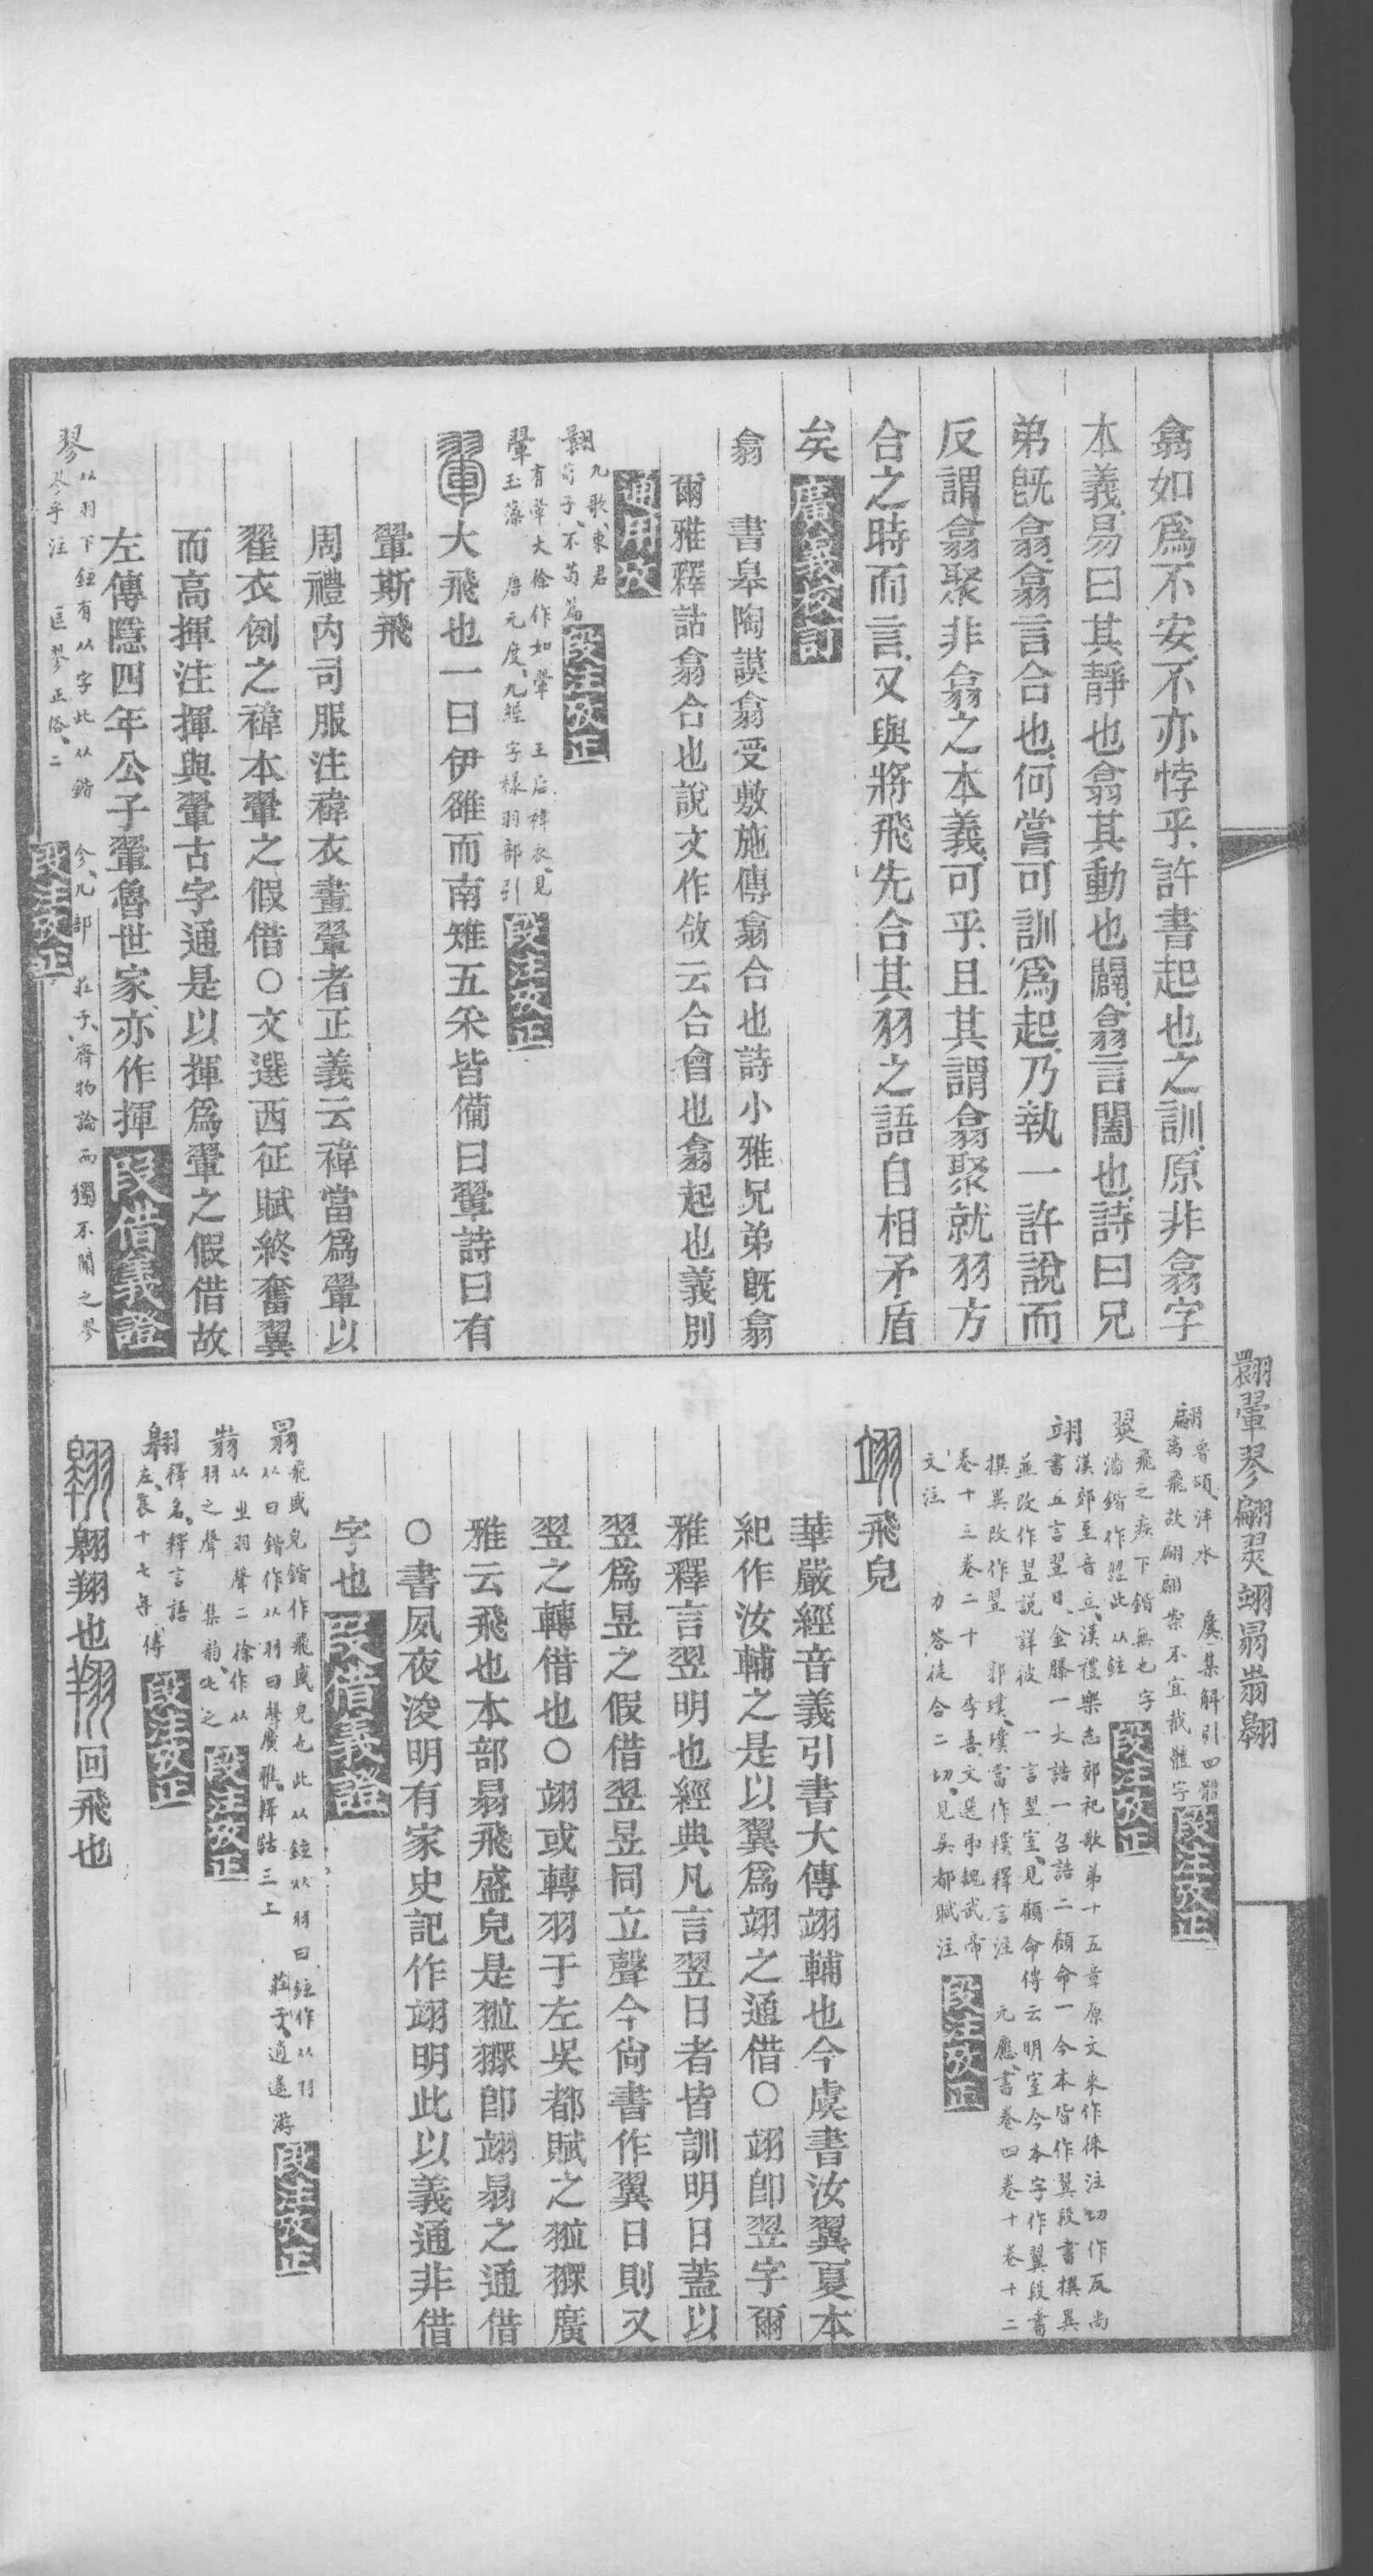 翕如爲不安不亦悖乎許書起也之訓原非翕字
本義易曰其靜也翕其動也闢翕言闔也詩曰兄
弟旣翕翕言合也何嘗可訓爲起乃執一許說而
反謂翕聚非翕之本義可乎且其謂翕聚就羽方
合之時而言又與將飛先合其羽之語自相矛盾
矣 廣義校訂
翕 書皋陶謨翕受敷施傳翕合也詩小雅兄弟旣翕
爾雅釋詁翕合也說文作㪉云合會也翕起也義別
通用攷
翾 九歌東君
荀子不苟篇 段注攷正
翬 有翬大徐作如翬 王后褘衣見
玉藻 唐元度九經字樣羽部引 段注攷正
翬 大飛也一曰伊雒而南雉五采皆備曰翬詩曰有
翬斯飛
周禮內司服注褘衣畫翬者正義云褘當爲翬以
翟衣例之褘本翬之假借○文選西征賦終奮翼
而高揮注揮與翬古字通是以揮爲翬之假借故
左傳隱四年公子翬魯世家亦作揮 段借義證
翏 从羽下鉉有从字此从鍇 今几部 莊子齊物論而獨不聞之翏
翏乎注 匡謬正俗二 段注攷正
翾翬翏翩翜翊㬼翁翱
翩 魯頌泮水 集解引四體
高飛故翩翩案不宜截體字 段注攷正
飛之疾下鍇無也字
潘鍇作 此从鉉 段注攷正
翊 漢郊至音立漢禮樂志郊祀歌弟十五章原文來作倈注切作反尚
書五言翌日金縢一大誥一召誥二顧命一今本皆作翼段書撰異
並改作翌說詳彼 一言翌室見顧命傳云明室今本字作翼段書
撰異改作翌 郭璞璞當作樸釋言注 元應書卷四卷十卷十二
卷十三卷二十 李善文選弔魏武帝
文注 力答徒合二切見吳都賦注 段注攷正
翊 飛皃
華嚴經音義引書大傳翊輔也今虞書汝翼夏本
紀作汝輔之是以翼爲翊之通借○翊卽翌字爾
雅釋言翌明也經典凡言翌日者皆訓明日蓋以
翌爲昱之假借翌昱同立聲今尙書作翼日則又
翌之轉借也○翊或轉羽于左吳都賦之𦐂㹺廣
雅云飛也本部㬼飛盛皃是𦐂㹺卽翊㬼之通借
○書夙夜浚明有家史記作翊明此以義通非借
字也 段借義證
㬼 飛盛皃鍇作飛盛皃也此从鉉从羽曰鉉作从羽
从曰鍇作从羽曰聲廣雅釋詁三上 莊子逍遙游 段注攷正
从 羽聲二徐作从
羽之聲 集韵 之 段注攷正
翱 釋名釋言語
左哀十七年傳 段注攷正
翱 翱翔也 翔 回飛也